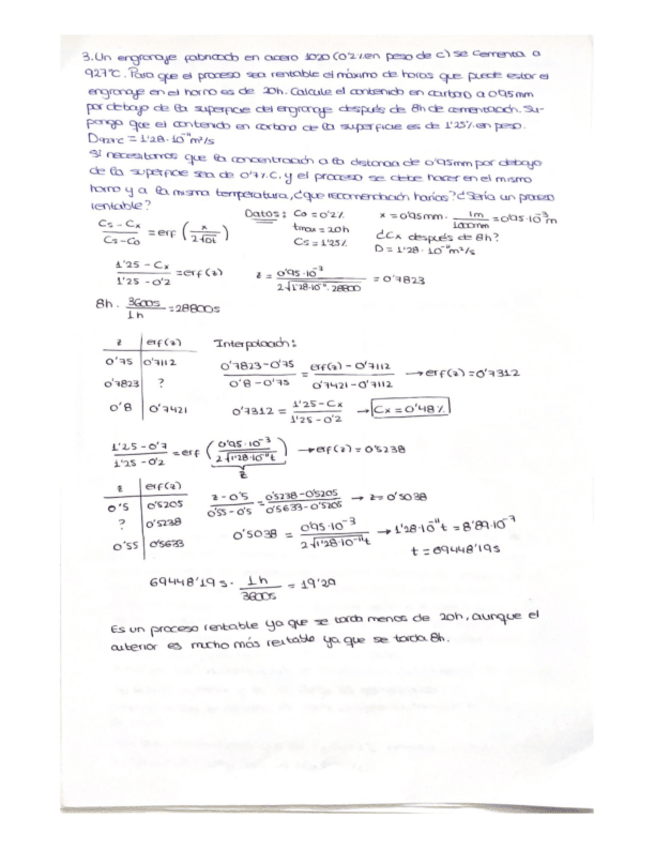 3. Un engranaje fabricado en acero 1020 (0'2% en peso de C) se cementa a
927°C. Para que el proceso sea rentable el máximo de horas que puede estar el
engranaje en el horno es de 20h. Calcule el contenido en carbono a 0'95mm
por debajo de la superficie del engranaje después de 8h de cementación. Su-
ponga que el contenido en carbono de la superficie es de 1'25% en peso.
D927°C = 1'28·10⁻¹¹ m²/s
Si necesitamos que la concentración a la distancia de 0'95mm por debajo
de la superficie sea de 0'7% C. y el proceso se debe hacer en el mismo
horno y a la misma temperatura, ¿que recomendación harías? ¿Sería un proceso
rentable?
(Cs - Cx)/(Cs - Co) = erf (x/(2√Dt)) Datos: Co = 0'2% x = 0'95mm · 1m/1000mm = 0'95·10⁻³m
tmax = 20h ¿Cx después de 8h?
Cs = 1'25% D = 1'28·10⁻¹¹ m²/s
(1'25 - Cx)/(1'25 - 0'2) = erf(z) z = 0'95·10⁻³/(2√1'28·10⁻¹¹·28800) = 0'7823
8h · 3600s/1h = 28800s
z erf(z) Interpolación:
0'75 0'7112 (0'7823 - 0'75)/(0'8 - 0'75) = (erf(z) - 0'7112)/(0'7421 - 0'7112) → erf(z) = 0'7312
0'7823 ?
0'8 0'7421 0'7312 = (1'25 - Cx)/(1'25 - 0'2) → Cx = 0'48%
(1'25 - 0'7)/(1'25 - 0'2) = erf (0'95·10⁻³/(2√1'28·10⁻¹¹t)) → erf(z) = 0'5238
z
z erf(z)
0'5 0'5205 (z - 0'5)/(0'55 - 0'5) = (0'5238 - 0'5205)/(0'5633 - 0'5205) → z = 0'5038
? 0'5238
0'55 0'5633 0'5038 = 0'95·10⁻³/(2√1'28·10⁻¹¹t) → 1'28·10⁻¹¹t = 8'89·10⁻⁷
t = 69448'19s
69448'19 s · 1h/3600s = 19'29
Es un proceso rentable ya que se tarda menos de 20h, aunque el
anterior es mucho más rentable ya que se tarda 8h.